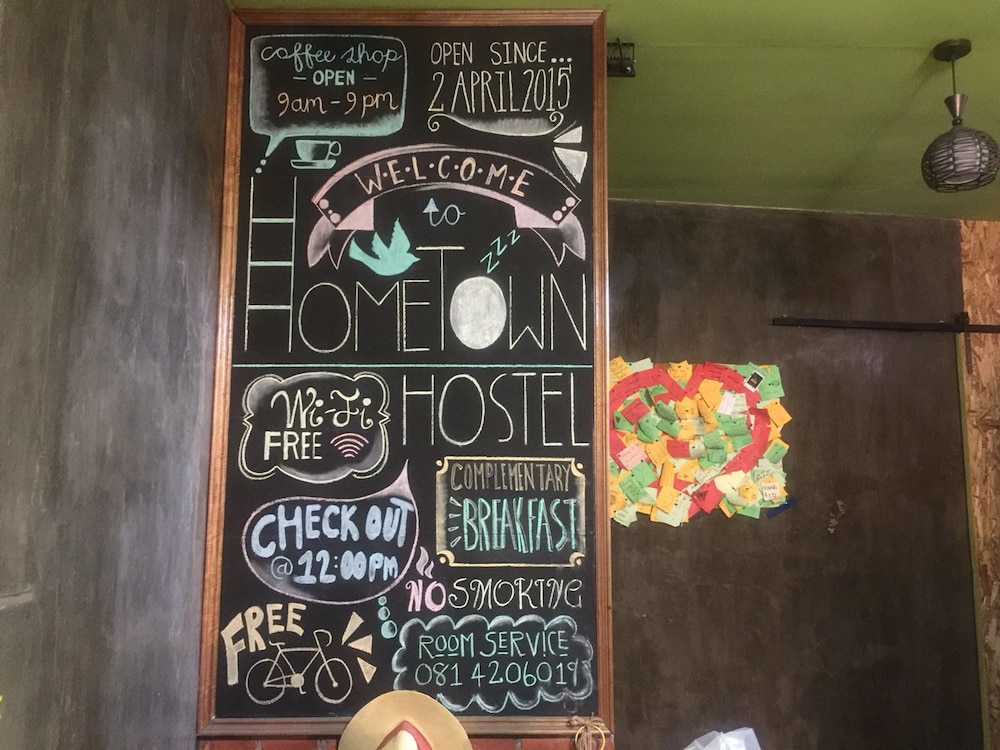 coffee shop
— OPEN —
9am - 9pm
OPEN SINCE...
2 APRIL 2015
W·E·L·C·O·M·E
to
zzz
HOMETOWN
HOSTEL
Wi-Fi
FREE
COMPLEMENTARY
BREAKFAST
CHECK OUT
@ 12:00PM
NO SMOKING
FREE
ROOM SERVICE
081 4206019